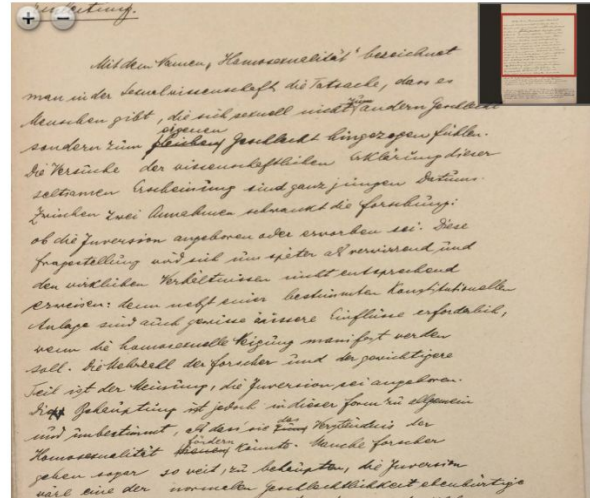 Einleitung.
Mit dem Namen „Homosexualität" bezeichnet
man in der Sexualwissenschaft die Tatsache, dass es
Menschen gibt, die sich sexuell nicht zum andern Geschlecht
sondern zum gleichen eigenen Geschlecht hingezogen fühlen.
Die Versuche der wissenschaftlichen Erklärung dieser
seltsamen Erscheinung sind ganz jungen Datums.
Zwischen zwei Annahmen schwankt die Forschung:
ob die Inversion angeboren oder erworben sei. Diese
Fragestellung wird sich uns später als verwirrend und
den wirklichen Verhältnissen nicht entsprechend
erweisen: denn nebst einer bestimmten Konstitutionellen
Anlage sind auch gewisse äussere Einflüsse erforderlich,
wenn die homosexuelle Neigung manifest werden
soll. Die Mehrzahl der Forscher und der gewichtigere
Teil ist der Meinung, die Inversion sei angeboren.
Behauptung ist jedoch in dieser Form zu allgemein
und unbestimmt, als dass sie zum das Verständnis der
Homosexualität fördern könnte. Manche Forscher
gehen sogar so weit, zu behaupten, die Inversion
wäre eine der normalen Geschlechtlichkeit ebenbürtige